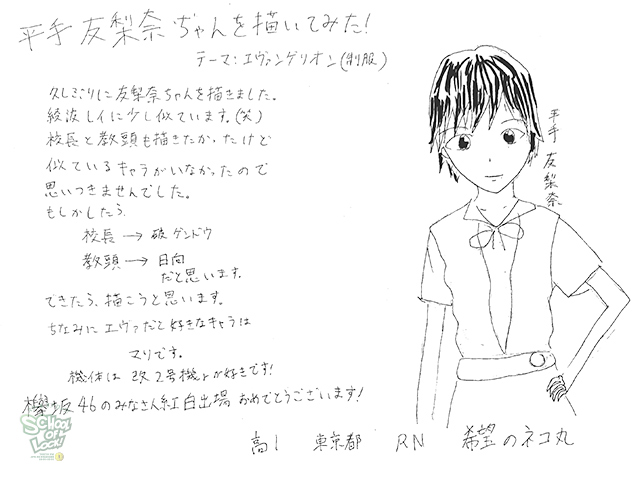 平手 友梨奈ちゃんを描いてみた!
テーマ:エヴァンゲリオン(制服)
久しぶりに友梨奈ちゃんを描きました。
綾波レイに少し似ています。(笑)
校長と教頭も描きたかったけど
似ているキャラがいなかったので
思いつきませんでした。
もしかしたら、
校長 → 碇ゲンドウ
教頭 → 日向
だと思います。
できたら、描こうと思います。
ちなみにエヴァだと好きなキャラは
マリです。
機体は 改2号機γが好きです!
欅坂46のみなさん紅白出場 おめでとうございます!
平手 友梨奈
SCHOOL OF LOCK!
高1 東京都 RN 希望のネコ丸